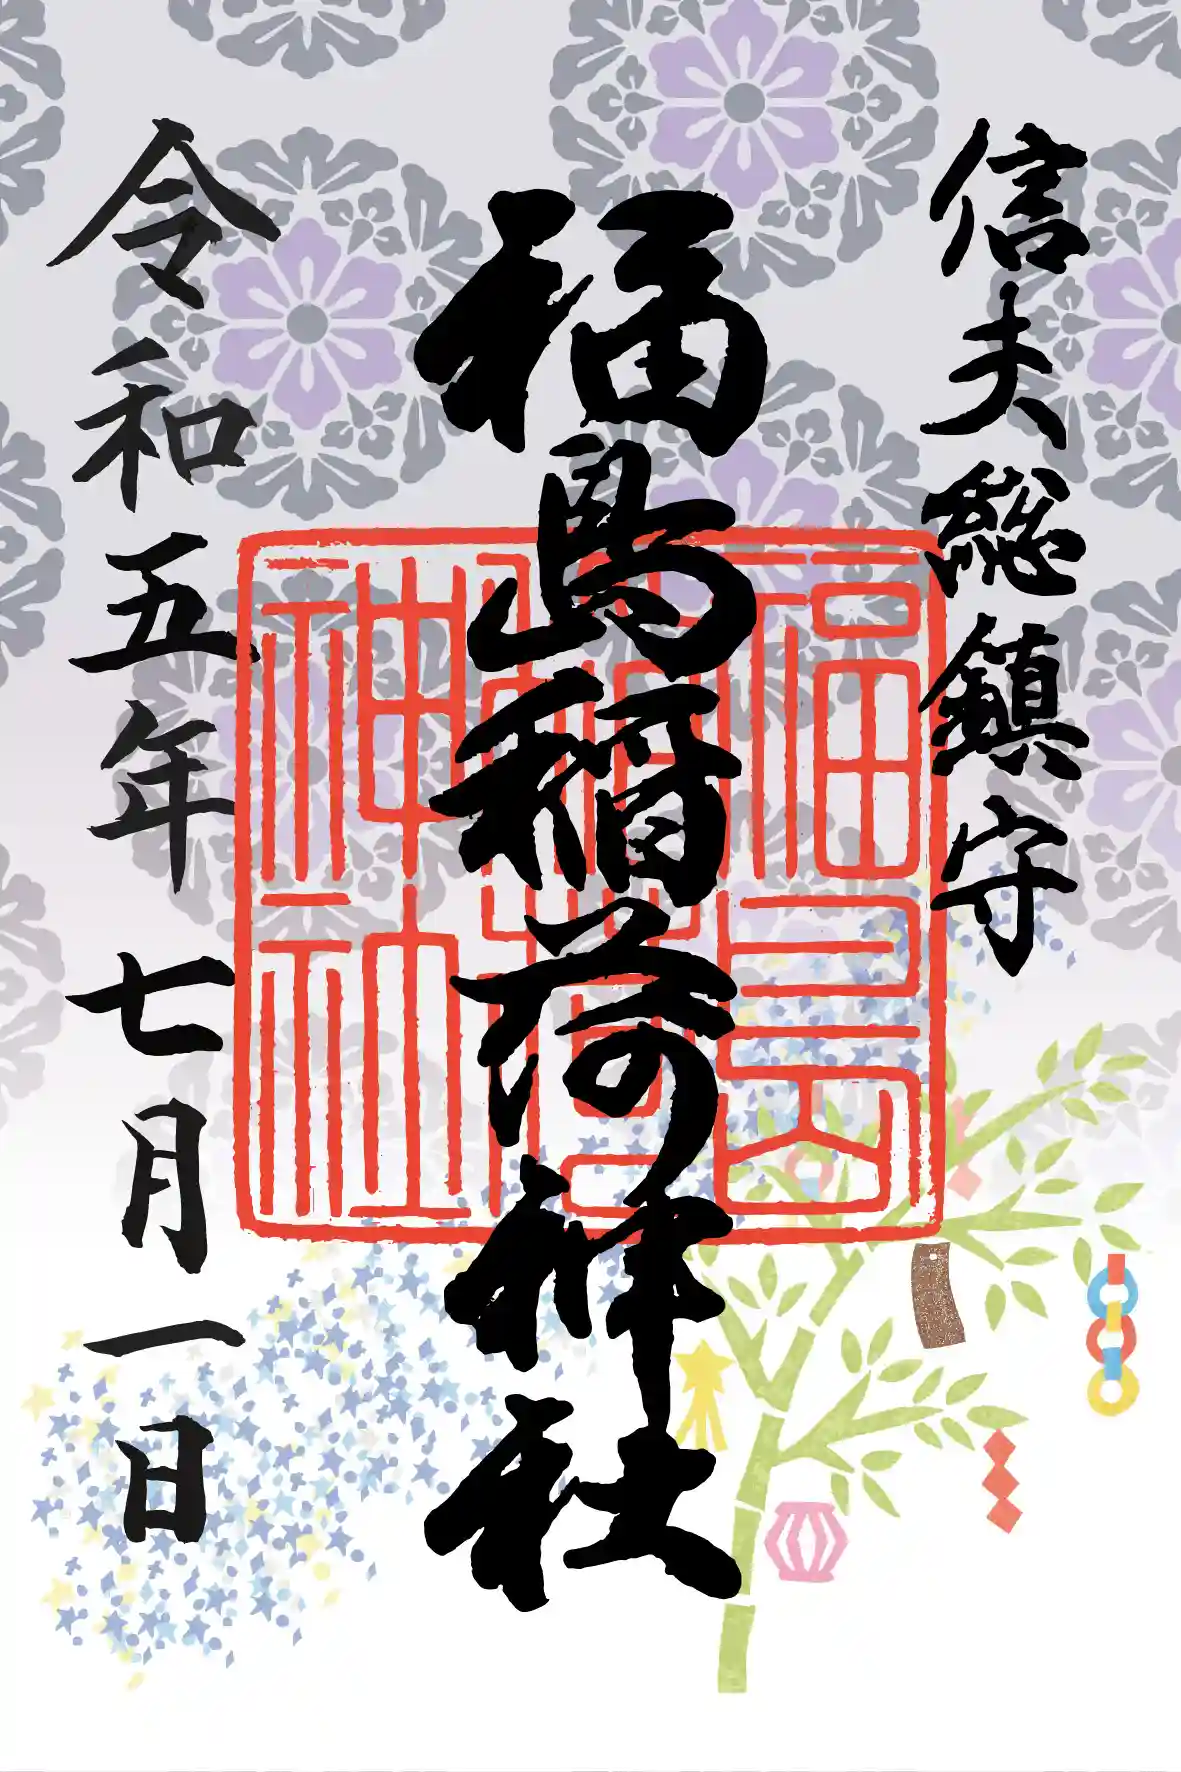 信夫総鎮守
福島稲荷神社
福島
稲荷
神社
令和五年 七月一日